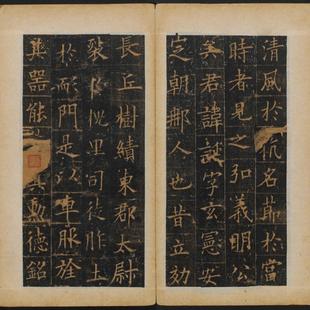 清風於抗名節於當
時者見之弘義明公
矣君諱誕字玄憲安
定朝那人也昔立效
長丘樹績東郡太尉
裂里司徒胙土
於耏門是以車服旌
其器能其勳德銘